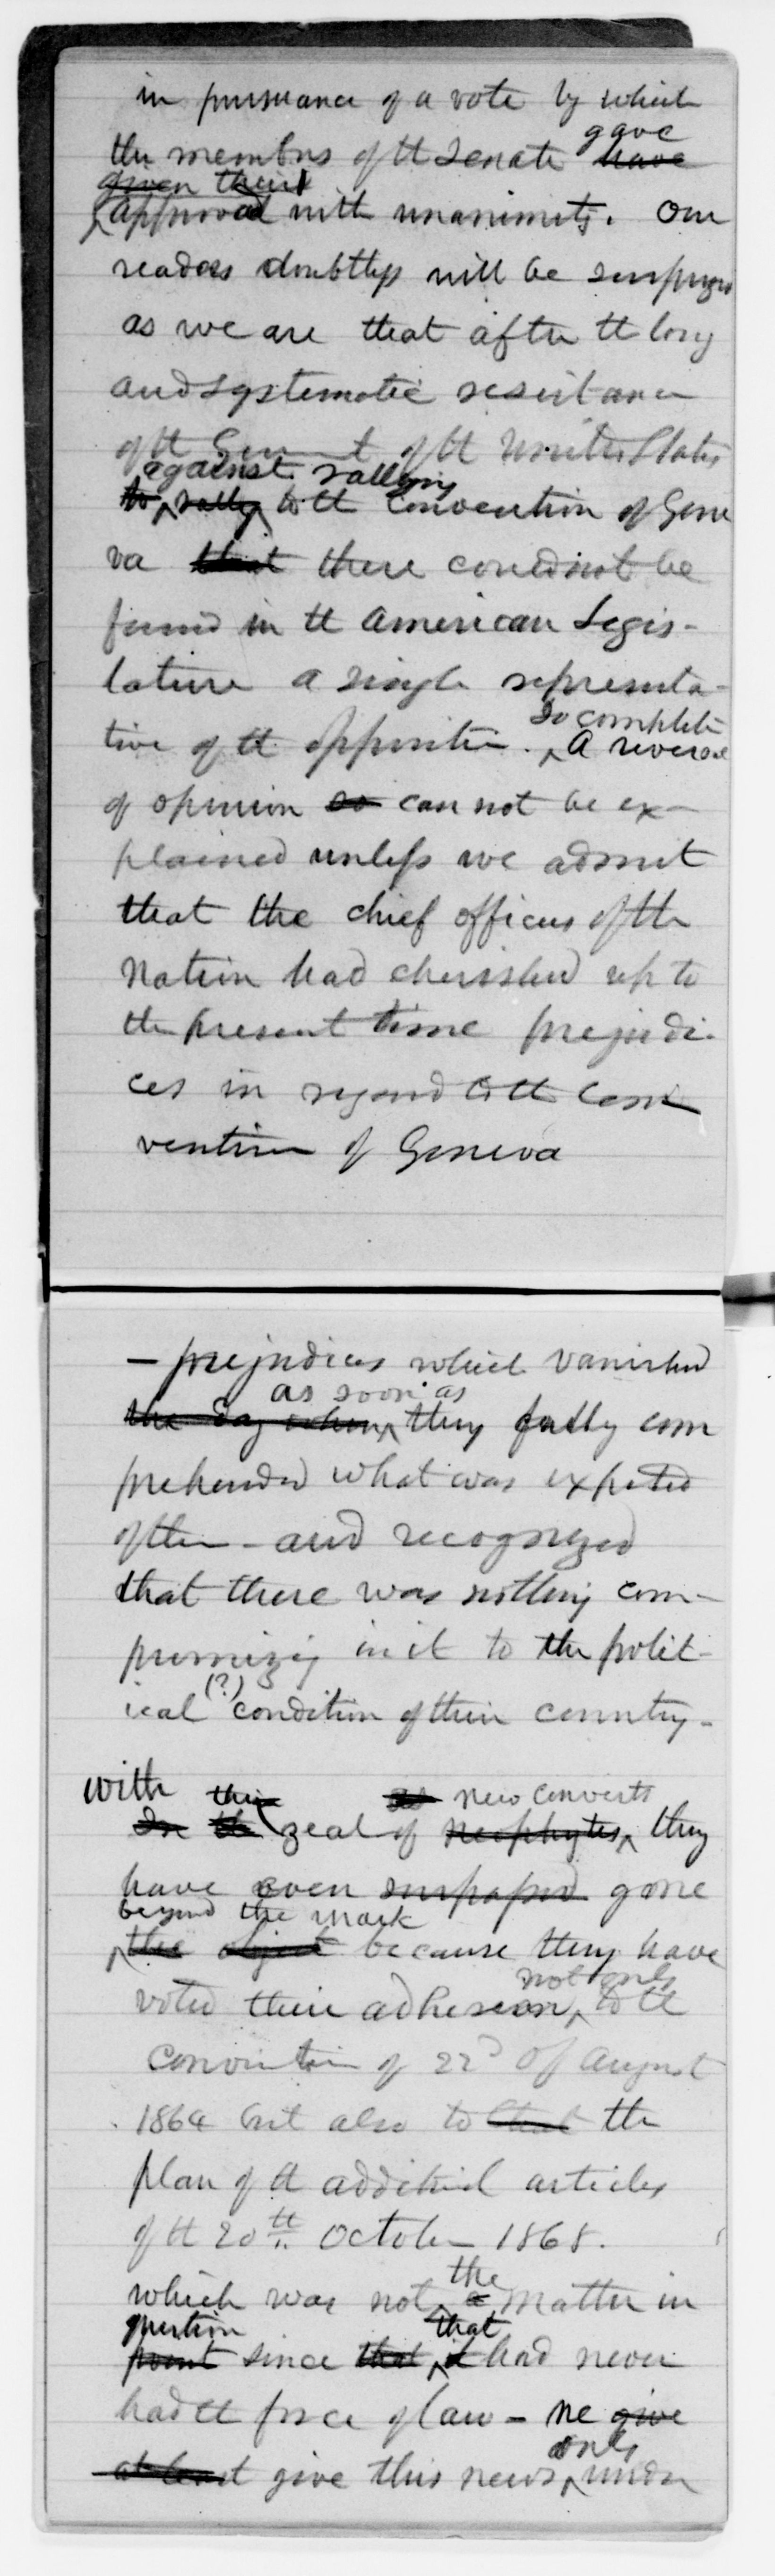 in pursuance of a vote by which
gave
the members of tt Senate have
given their
approval with unanimity. Our
readers doubtless will be surprized
as we are that after tt long
and systematic resistance
of tt Government of tt United States
against rallying
to rally to tt Convention of Gene
va that there could not be
found in tt American Legis-
lature a single representa-
so complete
tive of tt opposition. A reversal
of opinion so can not be ex-
plained unless we admit
that the chief officers of the
Nation had cherished up to
the present time prejudi-
ces in regard to tt Con
vention of Geneva
- prejudices which vanished
as soon as
the day when they fully com
prehended what was expected
of them - and recognized
that there was nothing com-
promizing in it to the polit-
(?)
ical condition of their country-
with the as new converts
In the zeal of neophytes, they
have even surpassed gone
beyond the mark
the object because they have
not only
voted their adhesion, to tt
Convention of 22d of August
1864 but also to that the
plan of tt additional articles
of tt 20tt October 1868.
the
which was not a matter in
question that
point since that it had never
had tt force of law - we give
only
at least give this news under